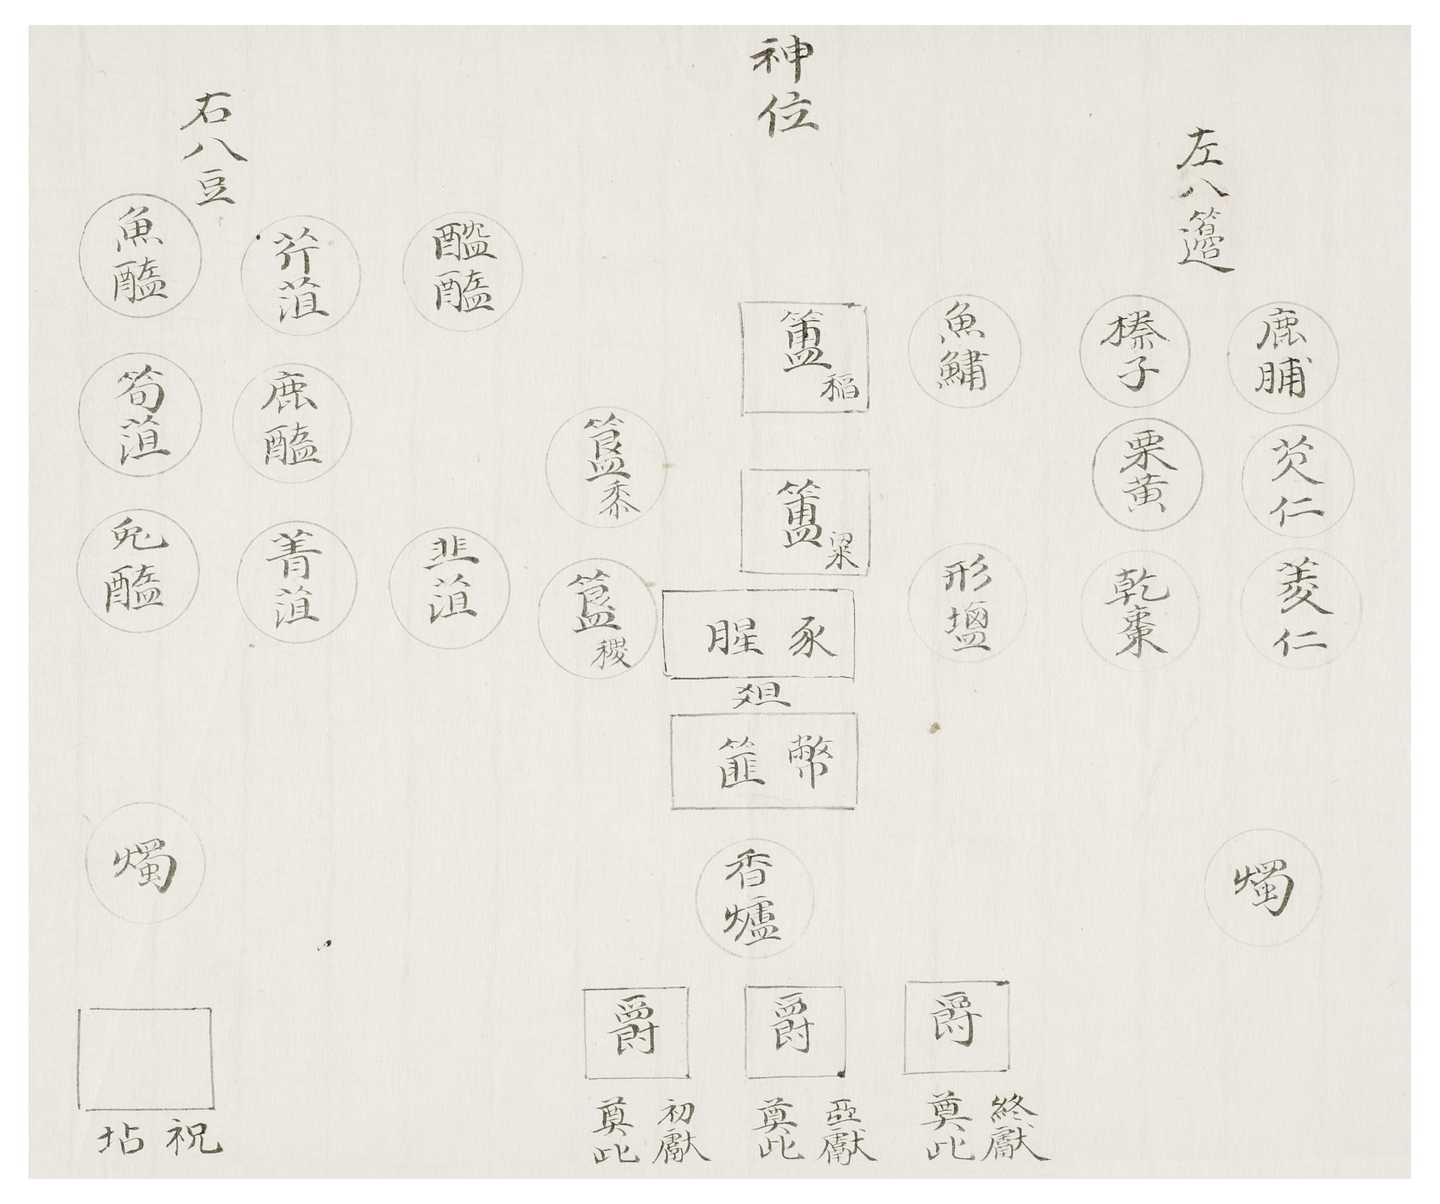 神位
左八籩
鹿脯
芡仁
菱仁
榛子
栗黃
乾棗
魚鱐
形塩
簠稻
簠粱
腥豕
俎
幣篚
簋黍
簋稷
右八豆
醓醢
韭菹
芹菹
鹿醢
菁菹
魚醢
筍菹
兔醢
燭
香爐
燭
爵
終獻奠此
爵
亞獻奠此
爵
初獻奠此
祝坫